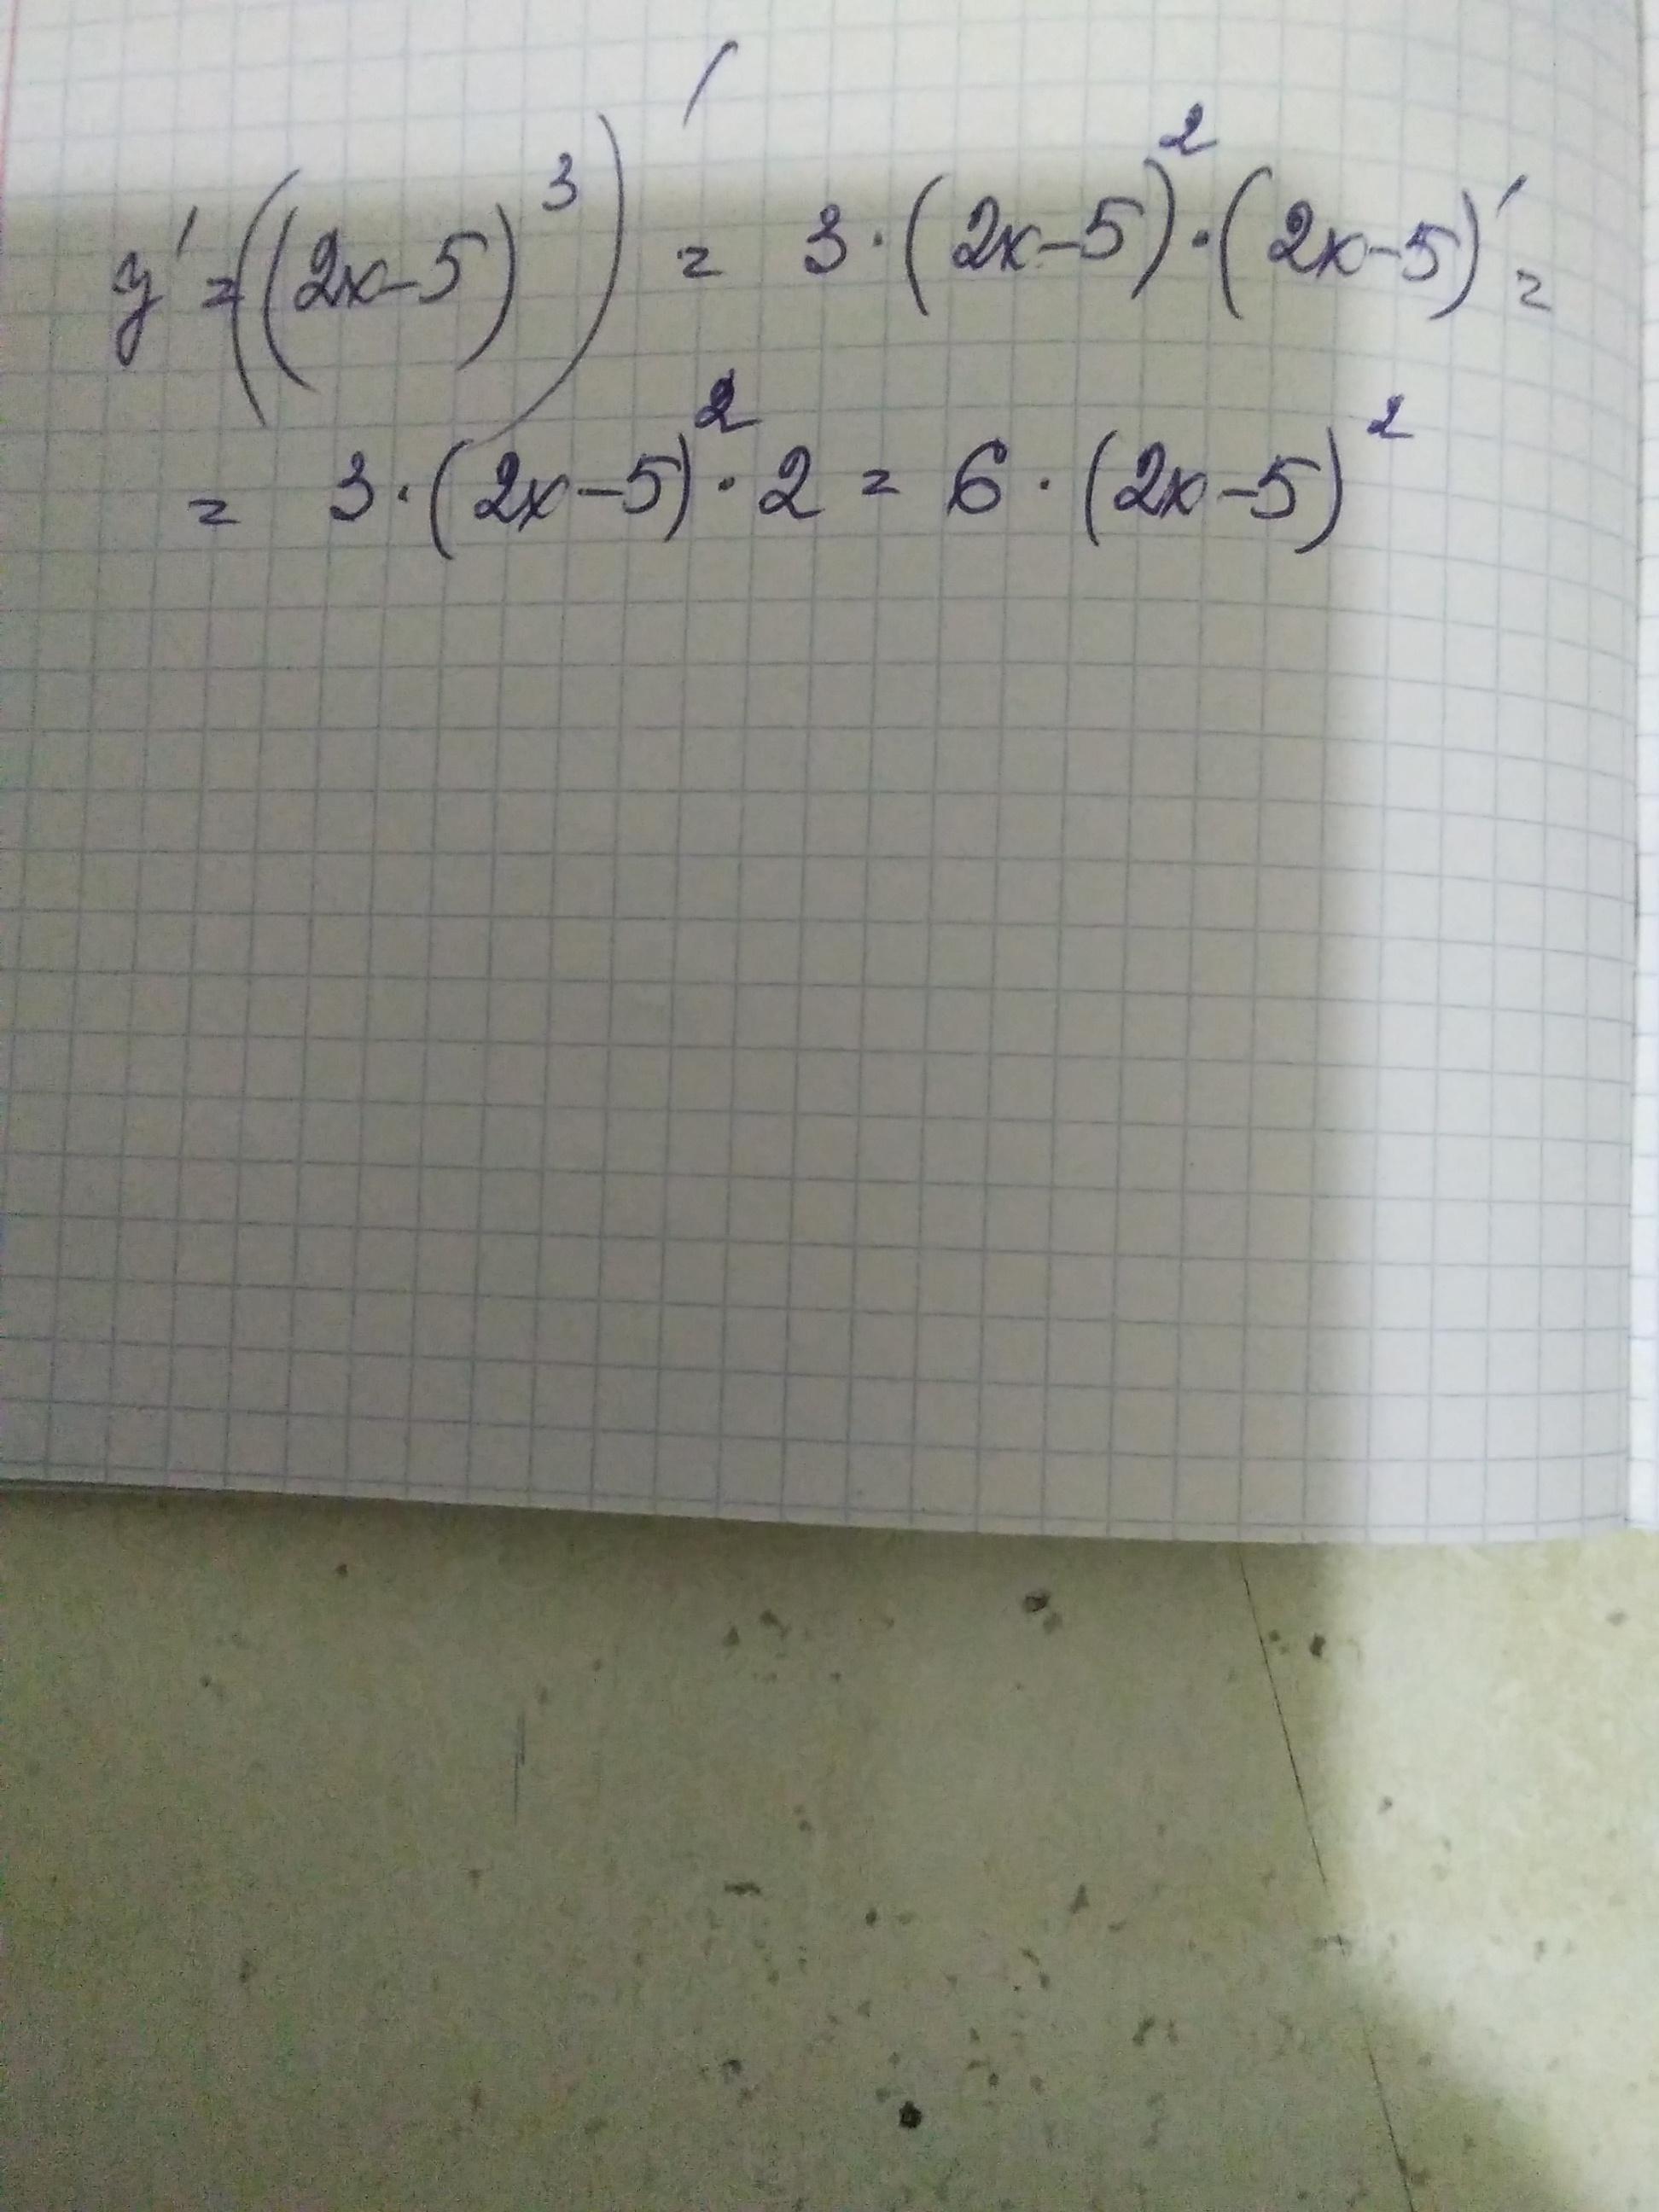 y' = ((2x-5)³)' = 3·(2x-5)²·(2x-5)' =
= 3·(2x-5)²·2 = 6·(2x-5)²